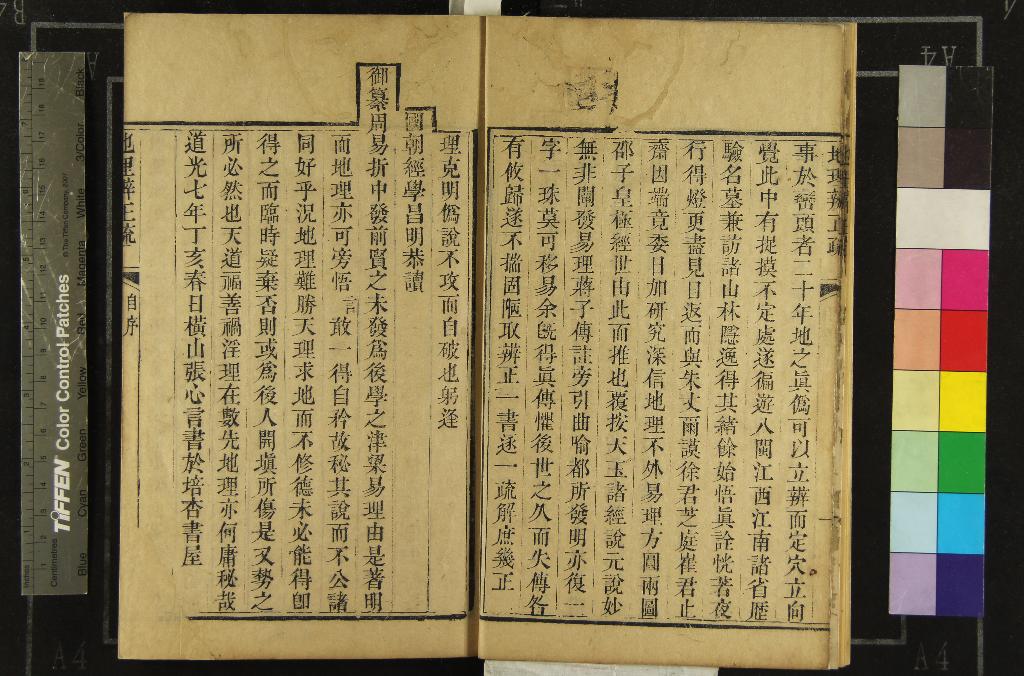 事於巒頭者二十年地之眞僞可以立辨而定穴立向
覺此中有捉摸不定處遂徧遊八閩江西江南諸省歷
驗名墓兼訪諸山林隱逸得其緒餘始悟眞詮恍若夜
行得燈更盡見日返而與朱丈爾謨徐君芝庭崔君止
齋因端竟委日加硏究深信地理不外易理方圓兩圖
邵子皇極經世由此而推也覆按天玉諸經說元說妙
無非闡發易理蔣子傳註旁引曲喻都所發明亦復一
字一珠莫可移易余旣得眞傳懼後世之久而失傳各
有攸歸遂不揣固陋取辨正一書逐一疏解庶幾正
理克明僞說不攻而自破也躬逢
國朝經學昌明恭讀
御纂周易折中發前賢之未發爲後學之津梁易理由是著明
而地理亦可旁悟言敢一得自矜故秘其說而不公諸
同好乎況地理難勝天理求地而不修德未必能得卽
得之而臨時疑棄否則或爲後人開塡所傷是又勢之
所必然也天道福善禍淫理在數先地理亦何庸秘哉
道光七年丁亥春日橫山張心言書於培杏書屋
地理辨正疏
自序
TIFFEN Color Control Patches
© The Tiffen Company, 2007
Centimetres
Inches
Blue
Cyan
Green
Yellow
Red
Magenta
White
3/Color
Black
A4
A4
A4
B4